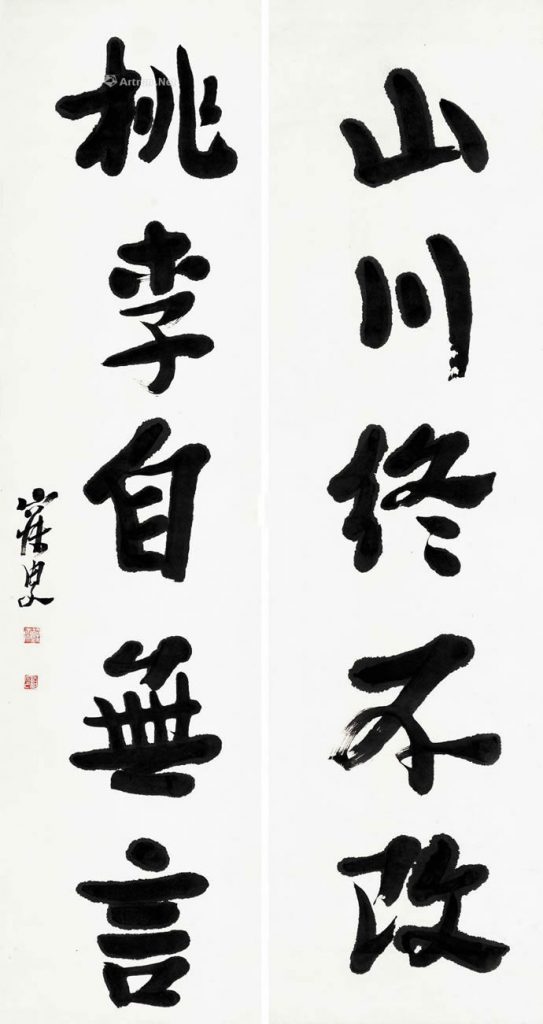 山川终不改
桃李自無言
Artron.Net